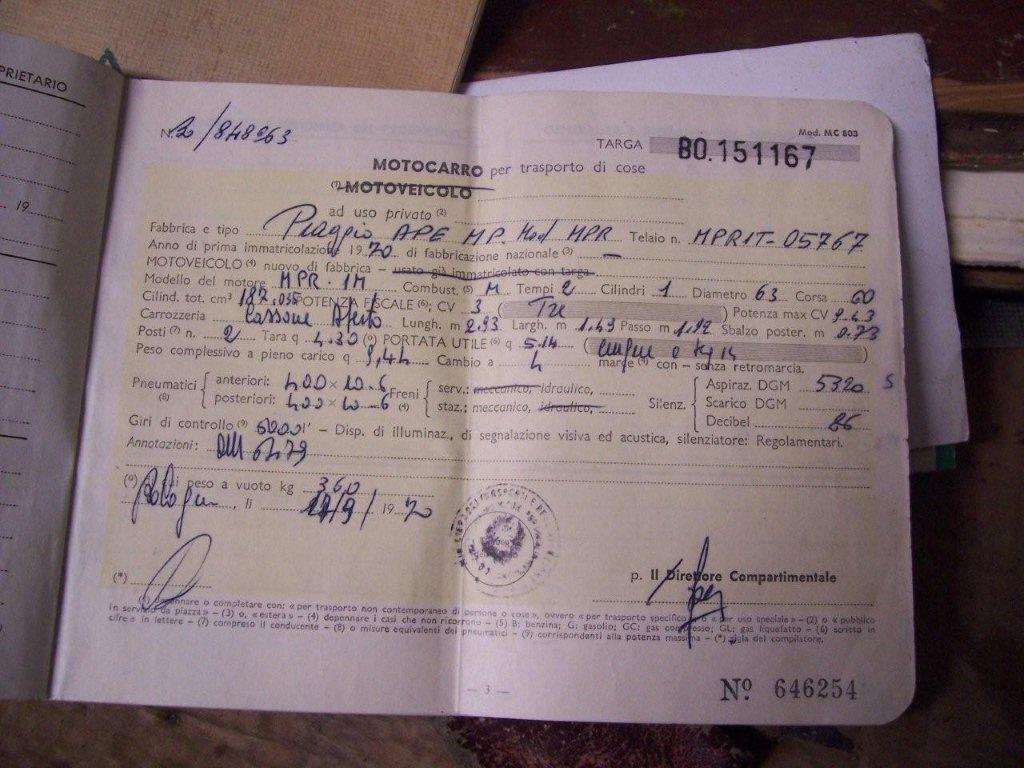 PRIETARIO
19
N. 20/848963
Mod. MC 803
TARGA BO.151167
MOTOCARRO per trasporto di cose
(1) MOTOVEICOLO
ad uso privato (2)
Fabbrica e tipo Piaggio APE MP. Mod MPR Telaio n. MPR1T-05767
Anno di prima immatricolazione 1970 di fabbricazione nazionale (3) —
MOTOVEICOLO (4) nuovo di fabbrica - usato già immatricolato con targa
Modello del motore MPR·1M Combust. (5) M Tempi 2 Cilindri 1 Diametro 63 Corsa 60
Cilind. tot. cm³ 187,036 POTENZA FISCALE (6): CV 3 (Tre) Potenza max CV 9.43
Carrozzeria Cassone Aperto Lungh. m 2.93 Largh. m 1.49 Passo m 1.92 Sbalzo poster. m 0.73
Posti (7) n. 2 Tara q 4.30 (°) PORTATA UTILE (6) q 5.14 (cinque e kg 14)
Peso complessivo a pieno carico q 9,44 Cambio a 4 marce (4) con - senza retromarcia.
Pneumatici (8) anteriori: 4.00 x 10-6 Freni (4) serv.: meccanico, idraulico, Silenz. Aspiraz. DGM 5320 S
posteriori: 4.00 x 10-6 staz.: meccanico, idraulico, Scarico DGM
Decibel 86
Giri di controllo (9) 6000 1' - Disp. di illuminaz., di segnalazione visiva ed acustica, silenziatore: Regolamentari.
Annotazioni: DM 6479
(°) di cui peso a vuoto kg 360
Bologna, li 14/9/1970
(*)
p. Il Direttore Compartimentale
(1) depennare o completare con: «per trasporto non contemporaneo di persone o cose», ovvero «per trasporto specifico» o «per uso speciale» - (2) o «pubblico
in servizio da piazza» - (3) o, «estera» - (4) depennare i casi che non ricorrono - (5) B: benzina; G: gasolio; GC: gas compresso; GL: gas liquefatto - (6) scritto in
cifre e in lettere - (7) compreso il conducente - (8) o misure equivalenti dei pneumatici - (9) corrispondenti alla potenza massima - (*) sigla del compilatore.
— 3 —
Nº 646254